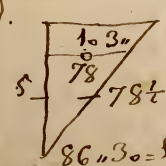 1„3„
78
5 78½
86„30=